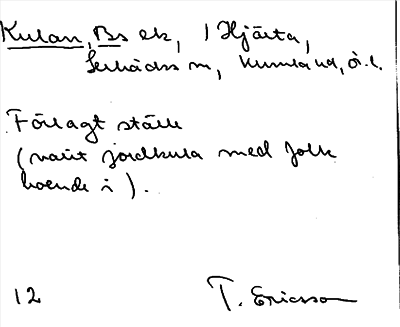 Kulan, Bs ek, i Hjärta,
Lerbäcks sn, Kumla hd, ö.l.
Förlagt ställe
(varit jordkula med folk
boende i).
12 T. Ericsson